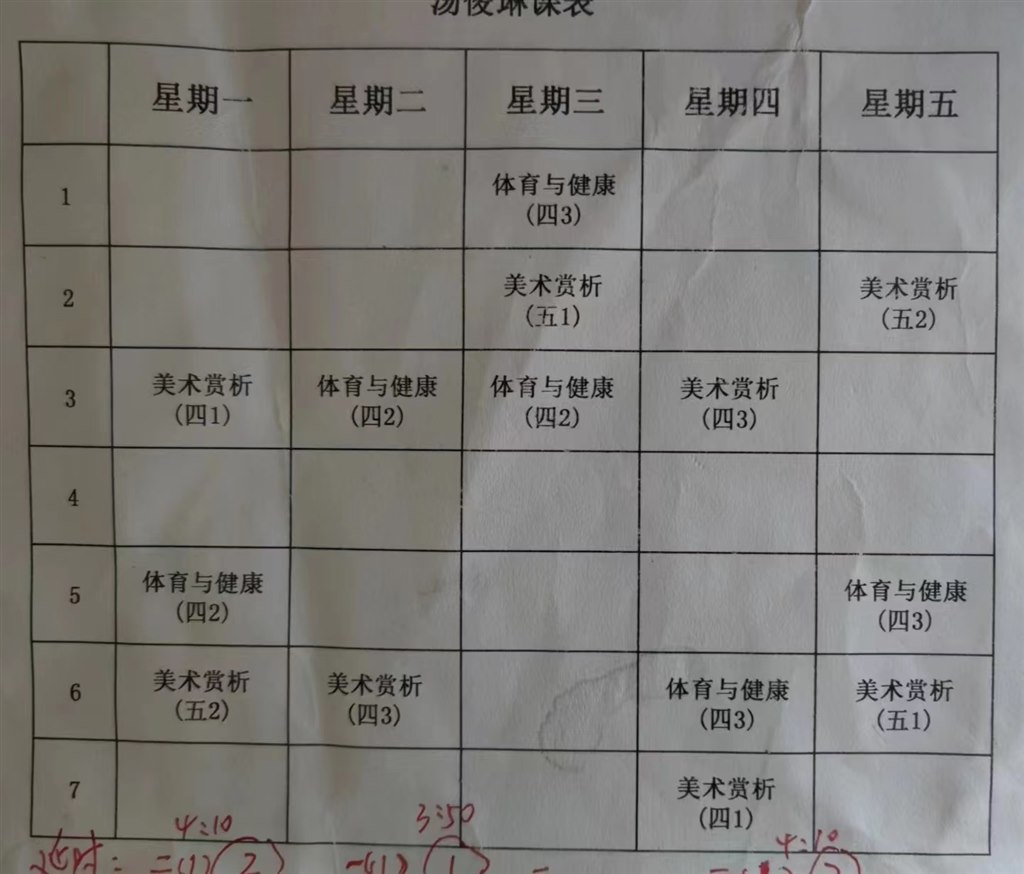 汤俊琳课表
星期一 星期二 星期三 星期四 星期五
1 体育与健康
(四3)
2 美术赏析 美术赏析
(五1) (五2)
3 美术赏析 体育与健康 体育与健康 美术赏析
(四1) (四2) (四2) (四3)
4
5 体育与健康 体育与健康
(四2) (四3)
6 美术赏析 美术赏析 体育与健康 美术赏析
(五2) (四3) (四3) (五1)
7 美术赏析
(四1)
4:10 3:50 4:10
延时: